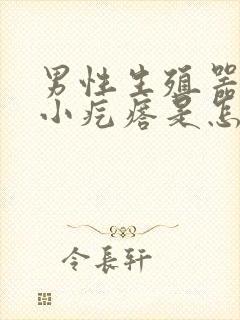 男性生殖器
小疙瘩是怎
令長轩